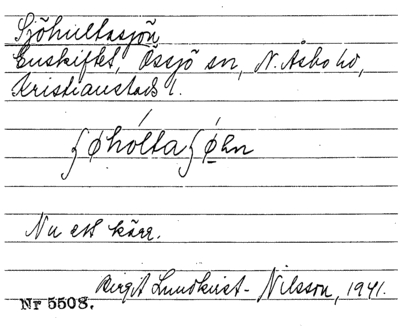 Sjöhultasjön
Enskiftet, Össjö sn, N. Åsbo hd,
Kristianstads l.
ʃøhólta ʃø̱hn
Nu ett kärr.
Birgit Lundkvist-Nilsson, 1941.
Nr 5508.